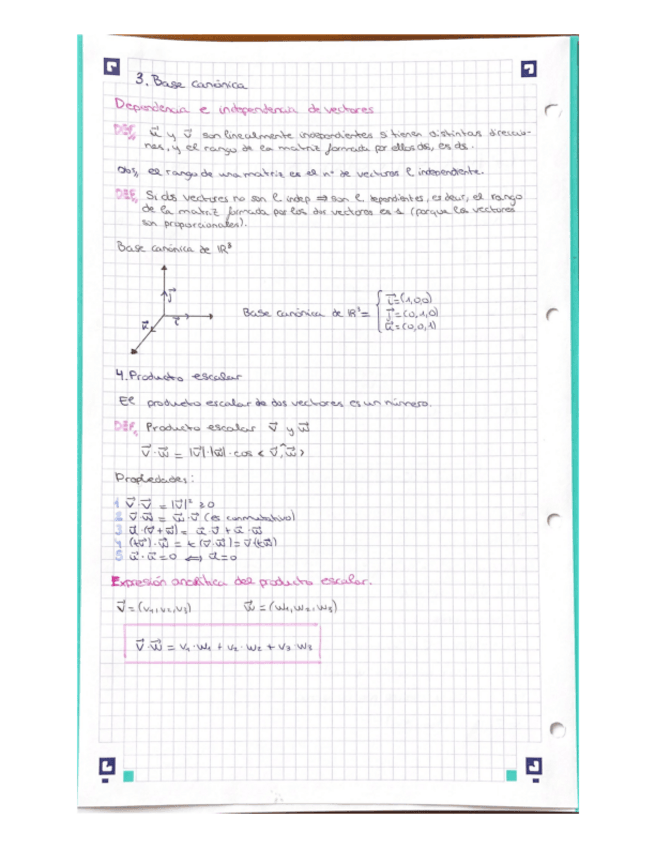 3. Base canónica
Dependencia e independencia de vectores
DEF, u⃗ y v⃗ son linealmente independientes si tienen distintas direccio-
nes, y el rango de la matriz formada por ellos dos, es dos.
Obs, el rango de una matriz es el nº de vectores l independiente.
DEF, Si dos vectores no son l indep ⇒ son l. dependientes, es decir, el rango
de la matriz formada por los dos vectores es 1 (porque los vectores
son proporcionales).
Base canónica de ℝ³
j⃗
k⃗ i⃗
Base canónica de ℝ³ = { i⃗=(1,0,0)
j⃗=(0,1,0)
k⃗=(0,0,1)
4. Producto escalar
El producto escalar de dos vectores es un número.
DEF, Producto escalar v⃗ y w⃗
v⃗·w⃗ = |v⃗|·|w⃗|·cos < v⃗,w⃗ >
Propiedades:
1 v⃗·v⃗ = |v⃗|² ≥0
2 v⃗·w⃗ = w⃗·v⃗ (es conmutativo)
3 u⃗·(v⃗+w⃗)= u⃗·v⃗ + u⃗·w⃗
4 (kv⃗)·w⃗ = k(v⃗·w⃗)=v⃗(kw⃗)
5 u⃗·u⃗=0 ⟺ u⃗=0
Expresión analítica del producto escalar.
v⃗=(v₁,v₂,v₃) w⃗=(w₁,w₂,w₃)
v⃗·w⃗ = v₁·w₁ + v₂·w₂ + v₃·w₃